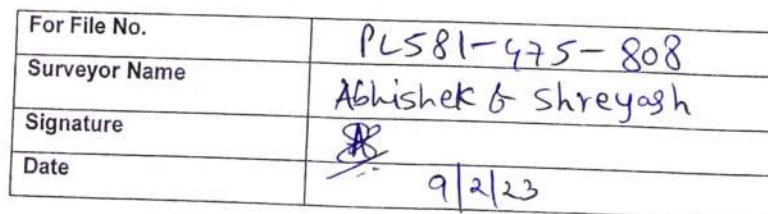 For File No. PL581-475-808
Surveyor Name Abhishek & Shreyash
Signature
Date 9/2/23